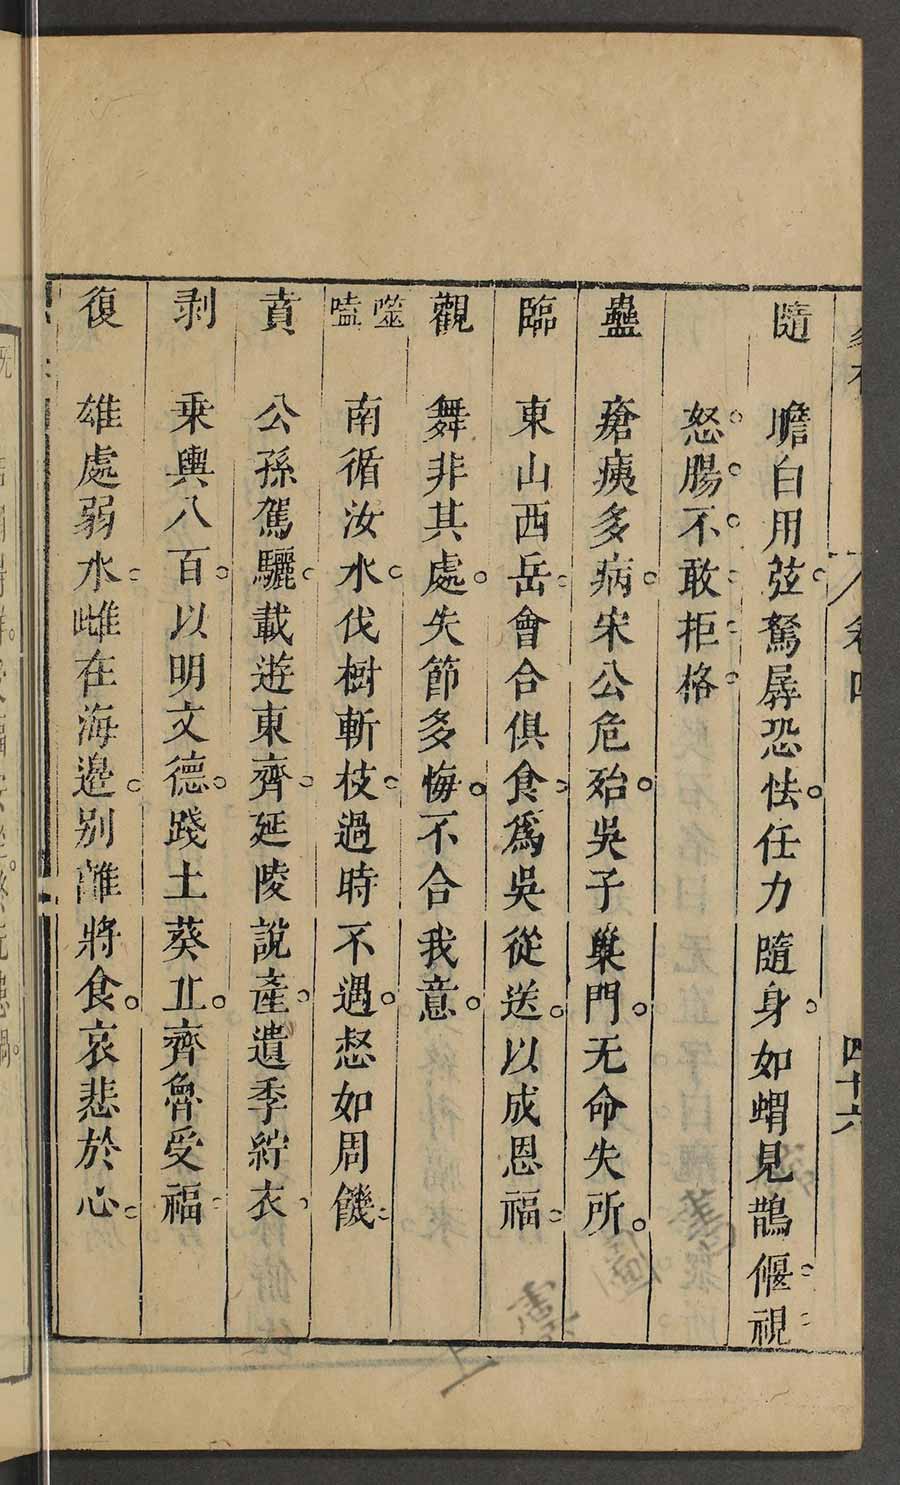 卷四
四十六
隨 膽白用弦駑孱恐怯任力隨身如蝟見鵲偃視
怒腸不敢拒格
蠱 瘡痍多病宋公危殆吳子巢門无命失所
臨 東山西岳會合俱食爲吳從送以成恩福
觀 舞非其處失節多悔不合我意
噬嗑 南循汝水伐樹斬枝過時不遇惄如周饑
賁 公孫駕驪載遊東齊延陵說產遺季紵衣
剥 乗輿八百以明文德踐土葵丘齊魯受福
復 雄處弱水雌在海邊别離將食哀悲於心